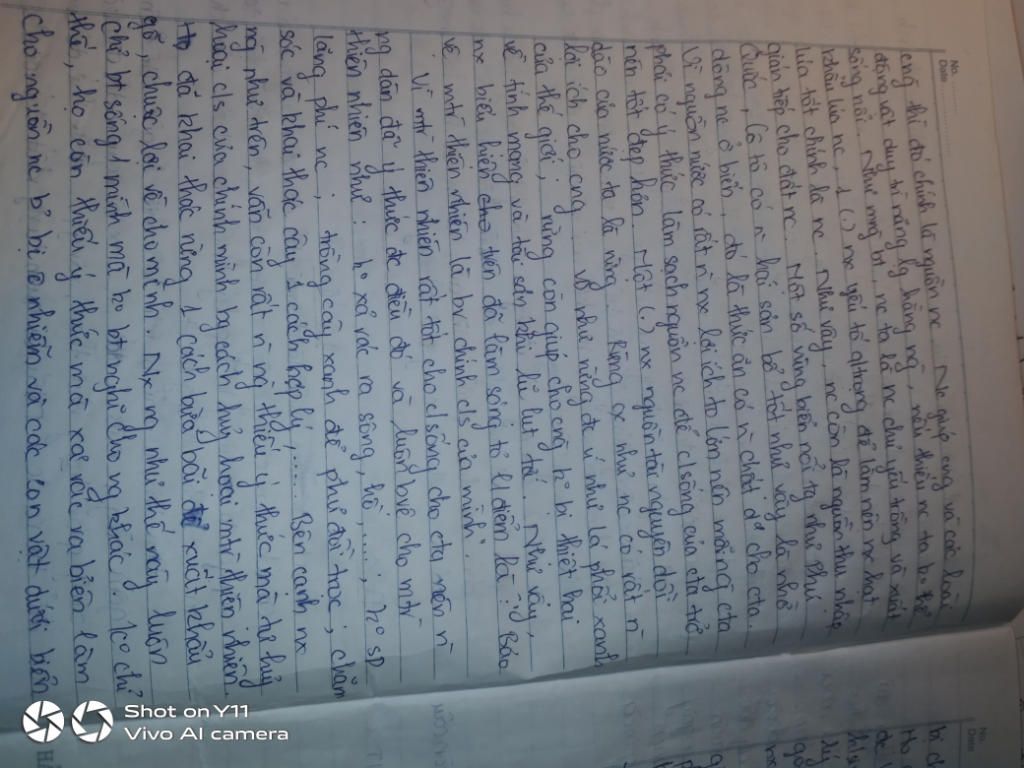 No.
Date
chg thì đó chính là nguồn nc. Nc giúp cng và các loài
động vật duy trì năng lg hằng ng, nếu thiếu nc ta ko thể
sống nổi. Như mng bt, nc ta là nc chủ yếu trồng và xuất
khẩu lúa nc, 1 (.) nx yếu tố qtrong để làm nên nx hạt
lúa tốt chính là nc. Như vậy, nc còn là nguồn thu nhập
gián tiếp cho đất nc. Một số vùng biển nổi tg như Phú
Quốc, Cô Tô có n hải sản bổ tốt như vậy là nhờ
dòng nc ở biển, đó là thức ăn có n chất d² cho cta.
Vì nguồn nước có rất n nx lợi ích to lớn nên mỗi ng cta
phải có ý thức làm sạch nguồn nc để c/sống của cta trở
nên tốt đẹp hơn. Một (.) nx nguồn tài nguyên dồi
dào của nước ta là rừng. Rừng cx như nc có rất n
lợi ích cho cng. Vd như rừng đc ví như lá phổi xanh
của thế giới; rừng còn giúp cho cng ko bị thiệt hại
về tính mạng và tài sản khi lũ lụt tới. Như vậy,
nx biểu hiện trên đã làm sáng tỏ l điểm là: "Bảo
vệ mtr thiên nhiên là bv chính c/s của mình".
Vì mtr thiên nhiên rất tốt cho c/sống cho cta nên n
ng dân đã ý thức đc điều đó và luôn bvệ cho mtr
thiên nhiên như: ko xả rác ra sông, hồ,....; ko sp
lãng phí nc; trồng cây xanh để phủ đồi trọc; chăm
sóc và khai thác cây 1 cách hợp lý;.... Bên cạnh nx
ng như trên, vẫn còn rất n ng thiếu ý thức mà tự hủy
hoại c/s của chính mình bg cách hủy hoại mtr thiên nhiên.
Họ đã khai thác rừng 1 cách bừa bãi để xuất khẩu
gỗ, chuộc lợi về cho mềnh. Nx ng như thế này luôn
chỉ bt sống 1 mình mà ko bt nghĩ cho ng khác. Ko chỉ
thế, họ còn thiếu ý thức mà xả rác ra biển làm
cho nguồn nc bị ô nhiễm và các con vật dưới biển
No.
Date
Shot on Y11
Vivo AI camera